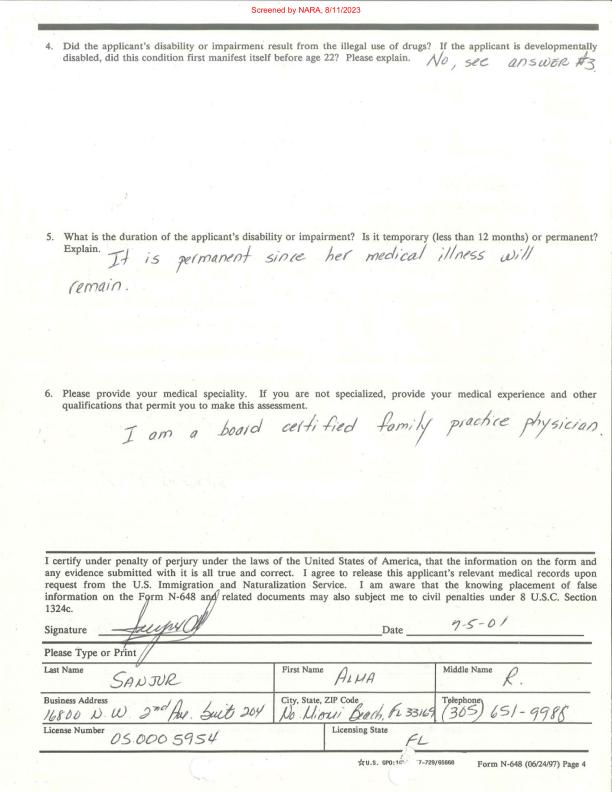 Screened by NARA, 8/11/2023
4. Did the applicant's disability or impairment result from the illegal use of drugs? If the applicant is developmentally
disabled, did this condition first manifest itself before age 22? Please explain. No, see answer #3
5. What is the duration of the applicant's disability or impairment? Is it temporary (less than 12 months) or permanent?
Explain. It is permanent since her medical illness will
remain.
6. Please provide your medical speciality. If you are not specialized, provide your medical experience and other
qualifications that permit you to make this assessment.
I am a board certified family practice physician.
I certify under penalty of perjury under the laws of the United States of America, that the information on the form and
any evidence submitted with it is all true and correct. I agree to release this applicant's relevant medical records upon
request from the U.S. Immigration and Naturalization Service. I am aware that the knowing placement of false
information on the Form N-648 and related documents may also subject me to civil penalties under 8 U.S.C. Section
1324c.
Signature Date 7-5-01
Please Type or Print
Last Name First Name Middle Name
SANJUR ALMA R.
Business Address City, State, ZIP Code Telephone
16800 N.W. 2nd Ave. Suite 204 No. Miami Beach, FL 33169 (305) 651-9988
License Number Licensing State
OS0005954 FL
☆U.S. GPO: 7-729/65668 Form N-648 (06/24/97) Page 4